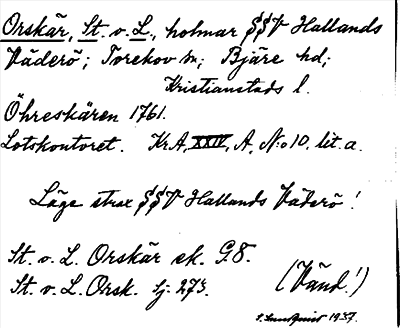 Orskär, St. o. L., holmar SSV Hallands
Väderö; Torekov sn; Bjäre hd;
Kristianstads l.
Öhreskären 1761.
Lotskontoret. KrA, XXIV, A, N:o 10, lit. a.
Läge strax SSV Hallands Väderö!
St. o. L. Orskär ek. G.8.
St. o. L. Orsk. Sj: 273.
(Vänd!)
S. Lundquist 1937.